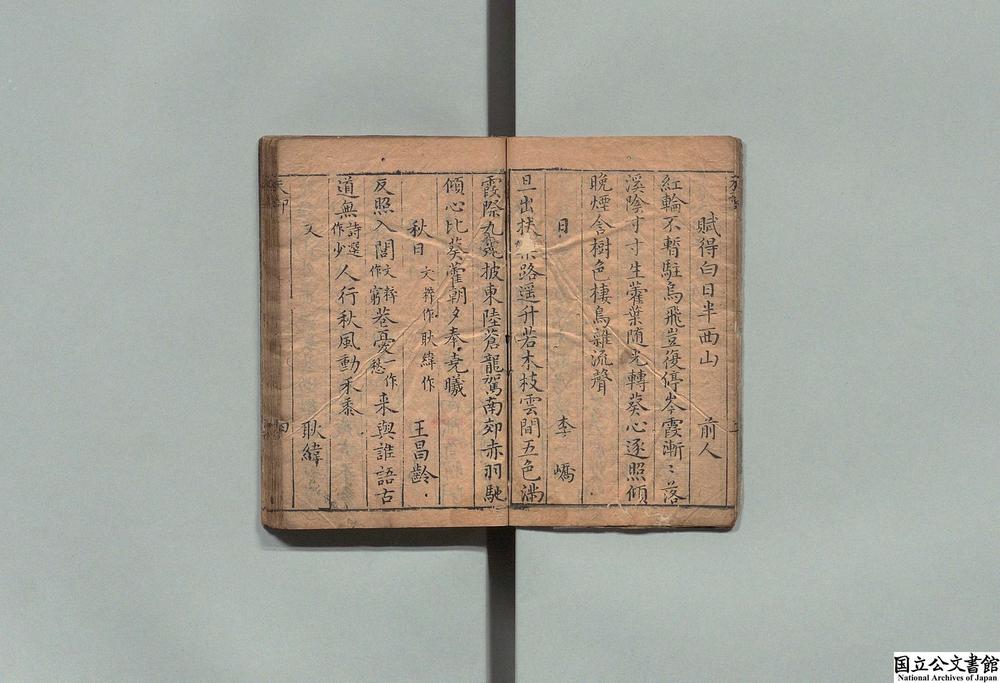 賦得白日半西山　前人
紅輪不暫駐烏飛豈復停岑霞漸〻落
溪陰寸寸生藿葉随光轉葵心逐照傾
晩煙含樹色棲烏雜流聲
日　李嶠
旦出扶桒路遥升若木枝雲間五色満
霞際九光披東陸蒼龍駕南郊赤羽馳
傾心比葵藿朝夕奉尭曦
秋日　文粹作耿緯作　王昌齡
反照入閭文粹作窮巷憂一作愁来與誰語古
道無詩選作少人行秋風動禾黍
又　耿緯
国立公文書館
National Archives of Japan